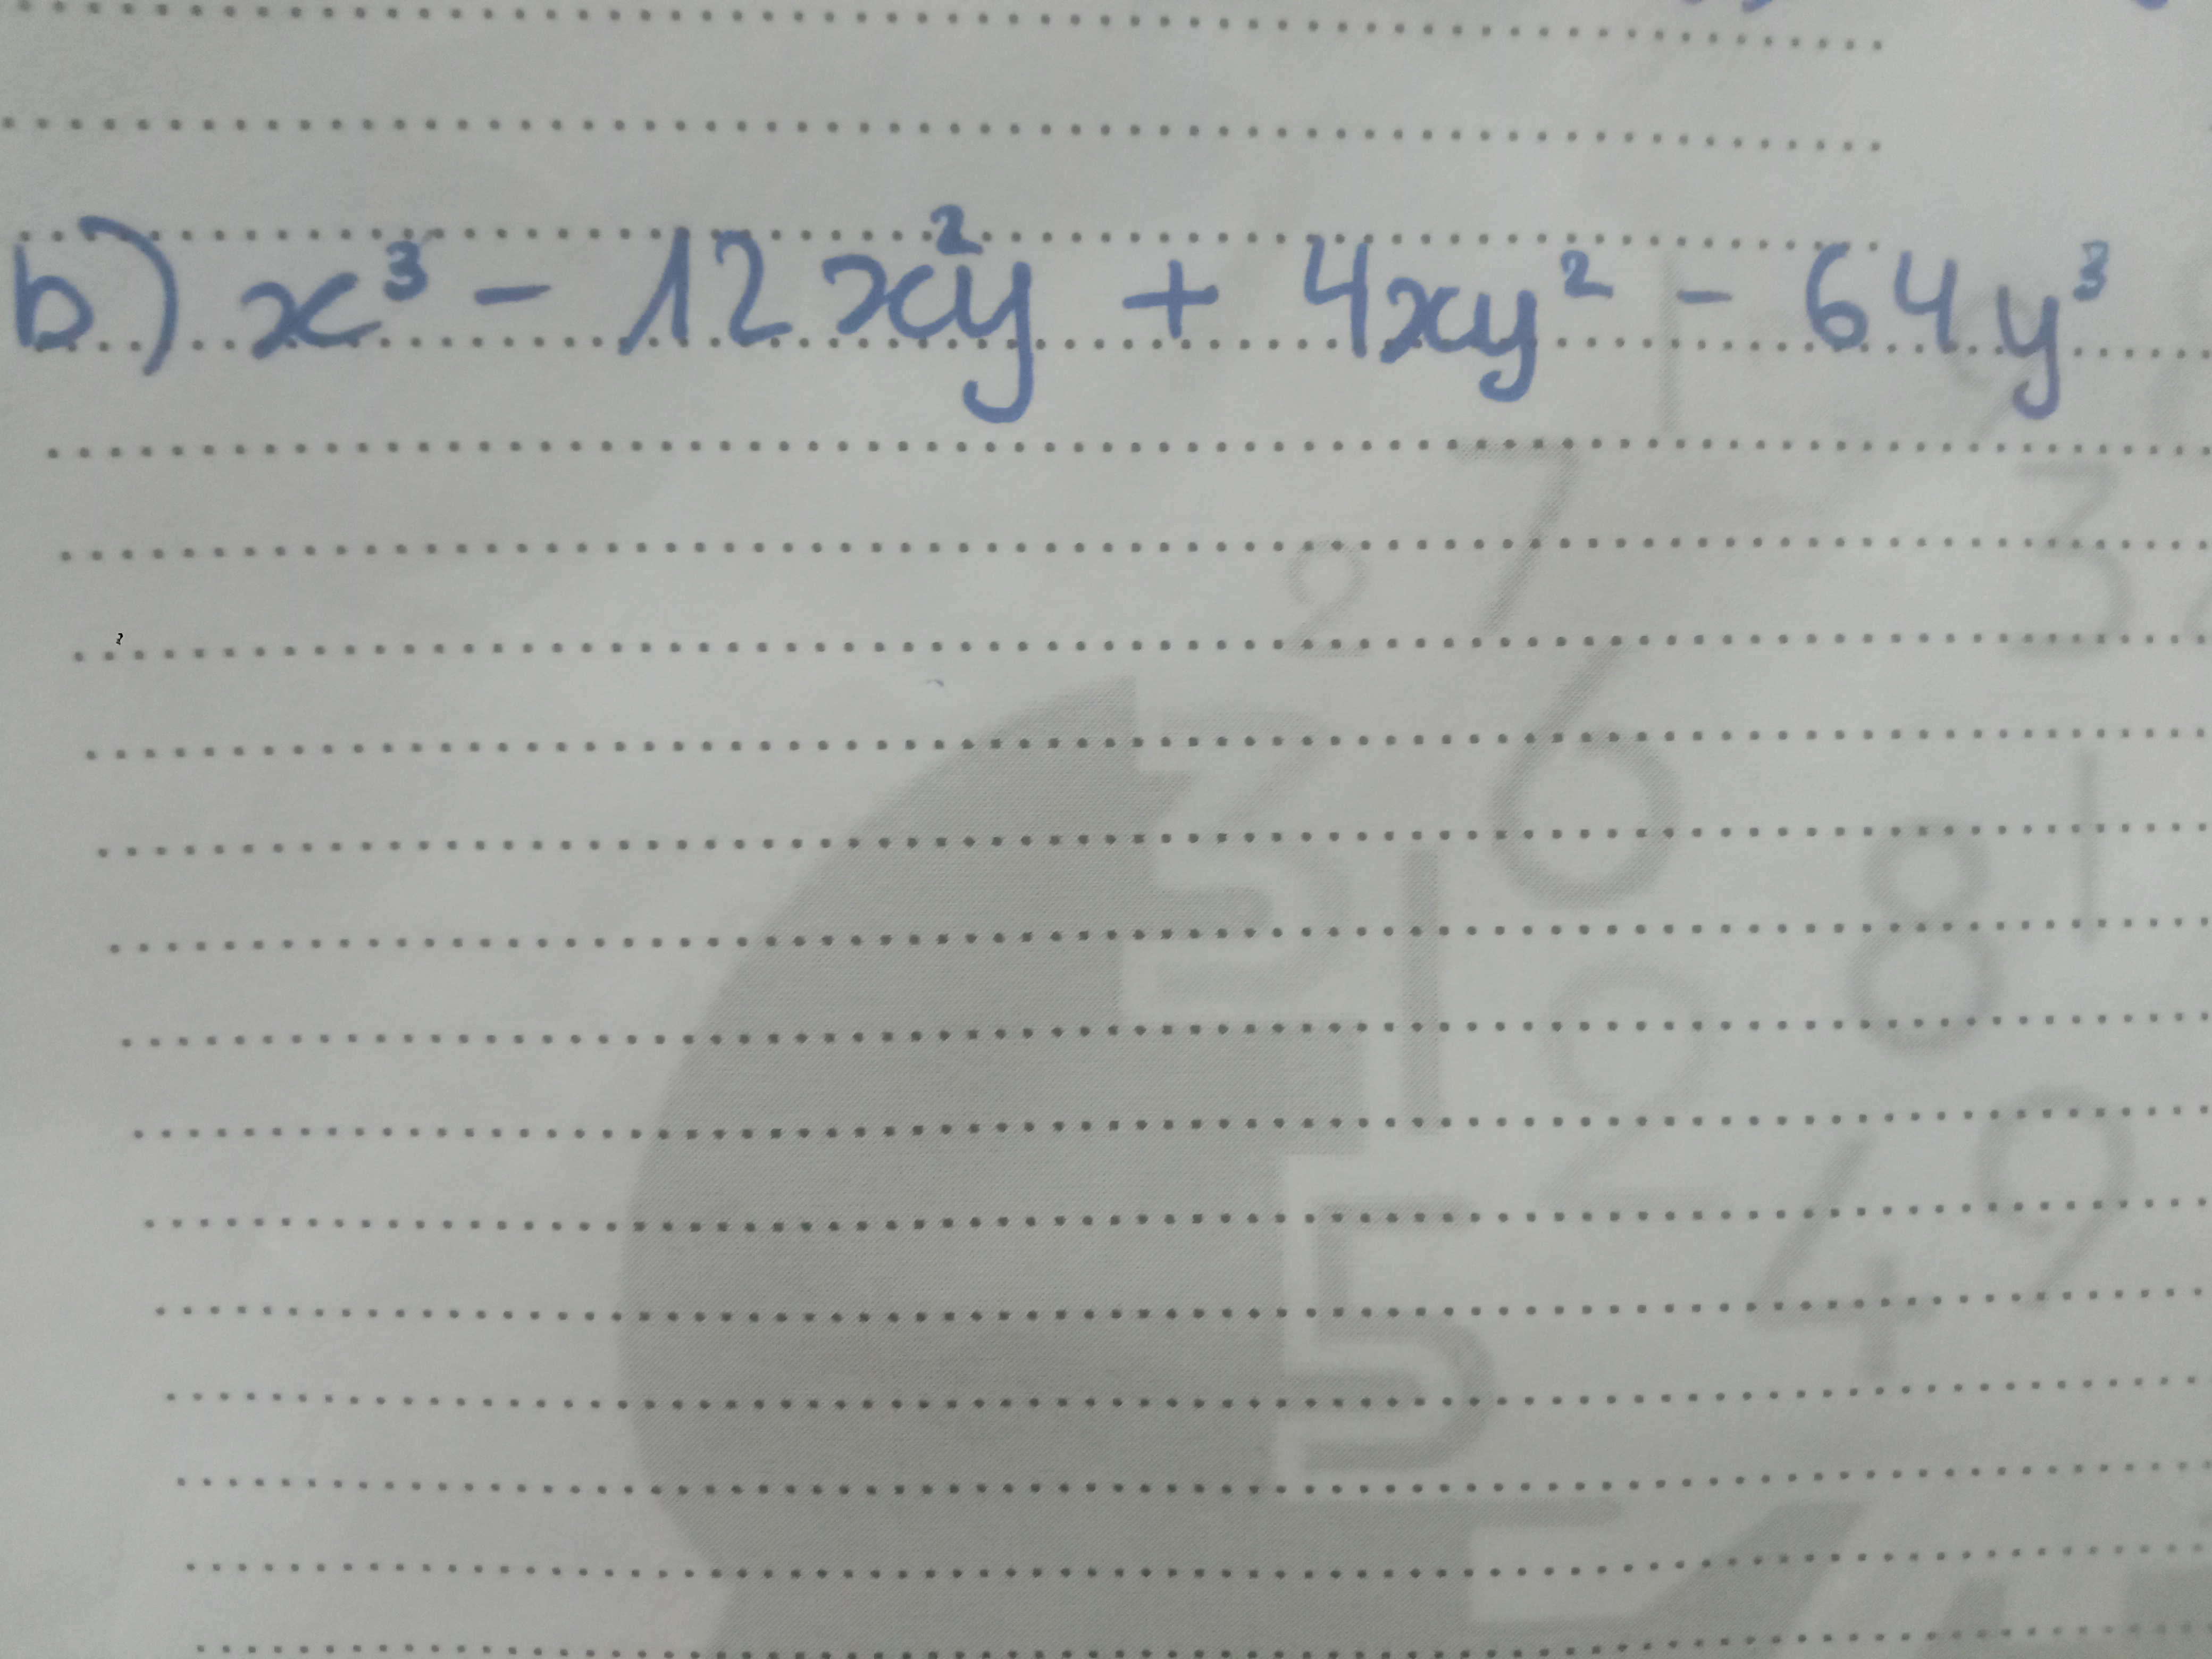 b) x³ - 12x²y + 4xy² - 64y³